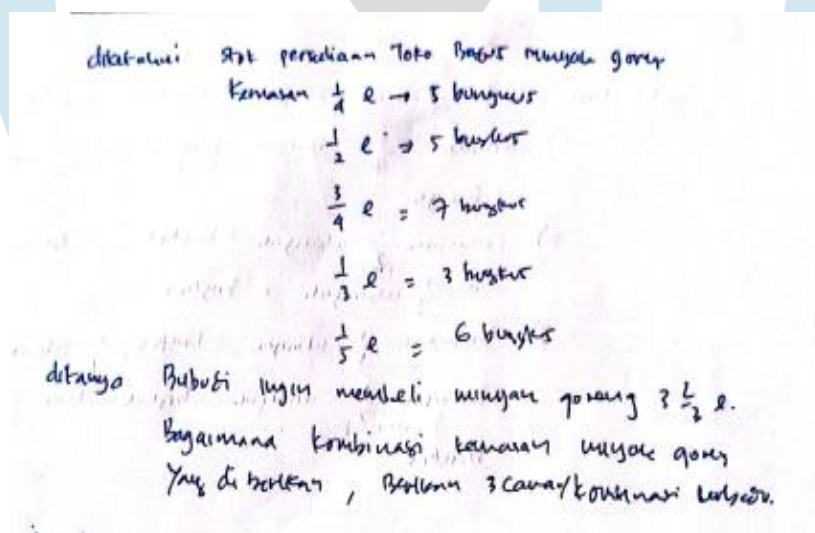 diketahui stok persediaan Toko Bagus minyak goreng
Kemasan 1/4 l → 5 bungkus
1/2 l → 5 bungkus
3/4 l = 7 bungkus
1/3 l = 3 bungkus
1/5 l = 6 bungkus
ditanya Bubudi ingin membeli minyak goreng 3 1/2 l.
Bagaimana kombinasi kemasan minyak goreng
Yang di berikan, Berikan 3 cara/kombinasi berbeda.